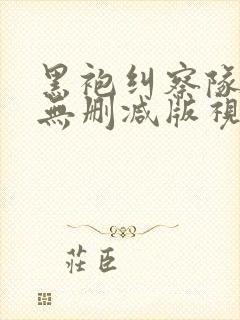 黑袍纠察隊
無删减版視
莊臣